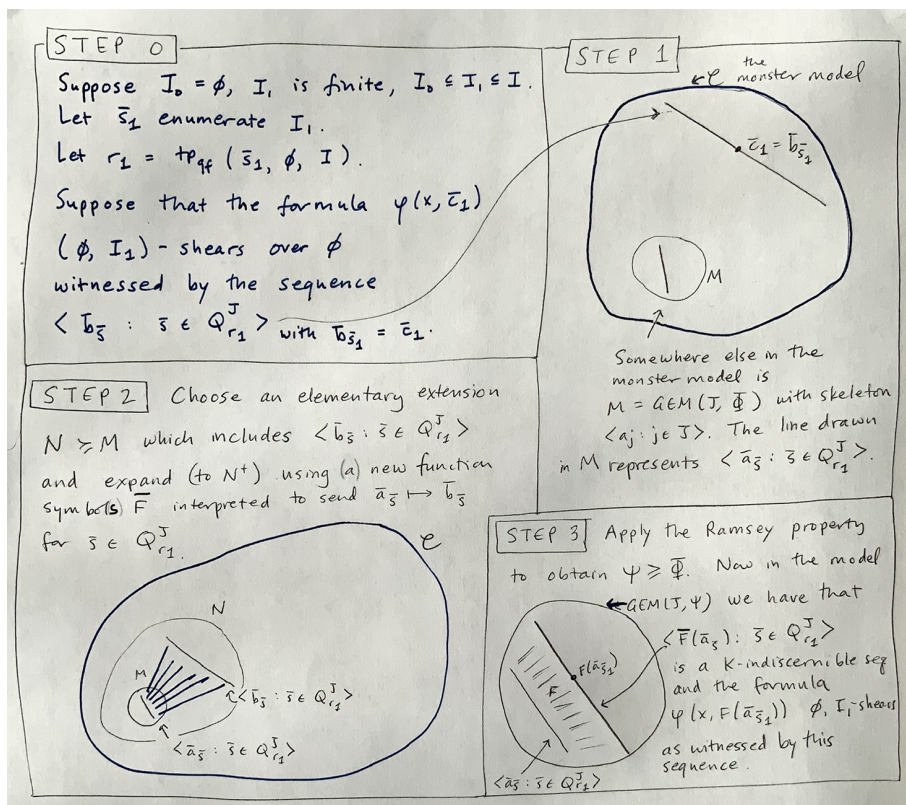 STEP 0
Suppose I₀ = ϕ, I₁ is finite, I₀ ⊆ I₁ ⊆ I.
Let s̄₁ enumerate I₁.
Let r₁ = tp_qf (s̄₁, ϕ, I).
Suppose that the formula φ(x, c̄₁)
(ϕ, I₁) - shears over ϕ
witnessed by the sequence
< b̄_s̄ : s̄ ∈ Q^J_r₁ > with b̄_s̄₁ = c̄₁.
STEP 1
the
← 𝒞 monster model
c̄₁ = b̄_s̄₁
M
Somewhere else in the
monster model is
M = GEM(J, Φ) with skeleton
<aj : j ∈ J>. The line drawn
in M represents < ā_s̄ : s̄ ∈ Q^J_r₁ >.
STEP 2 Choose an elementary extension
N ≽ M which includes < b̄_s̄ : s̄ ∈ Q^J_r₁ >
and expand (to N⁺) using (a) new function
symbol(s) F̄ interpreted to send ā_s̄ ↦ b̄_s̄
for s̄ ∈ Q^J_r₁.
𝒞
N
M
< b̄_s̄ : s̄ ∈ Q^J_r₁ >
< ā_s̄ : s̄ ∈ Q^J_r₁ >
STEP 3 Apply the Ramsey property
to obtain Ψ ≥ Φ. Now in the model
← GEM(J, Ψ) we have that
< F̄(ā_s̄) : s̄ ∈ Q^J_r₁ >
is a K-indiscernible seq
and the formula
φ(x, F(ā_s̄₁)) ϕ, I₁-shears
as witnessed by this
sequence.
F(ā_s̄₁)
F
< ā_s̄ : s̄ ∈ Q^J_r₁ >